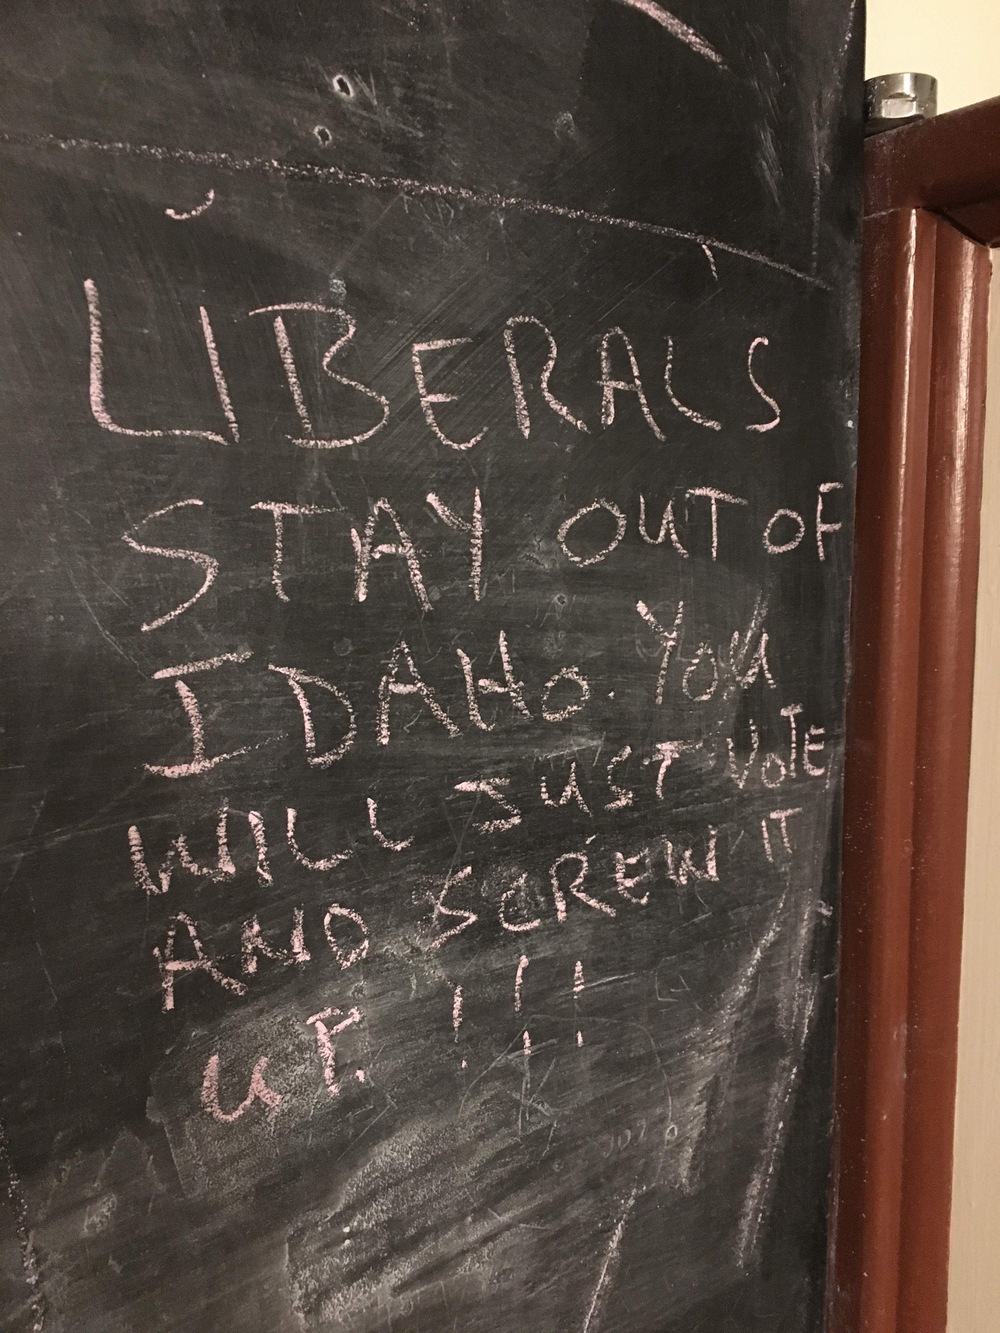 LIBERALS
STAY OUT OF
IDAHO. YOU
WILL JUST VOTE
AND SCREW IT
UP!!!